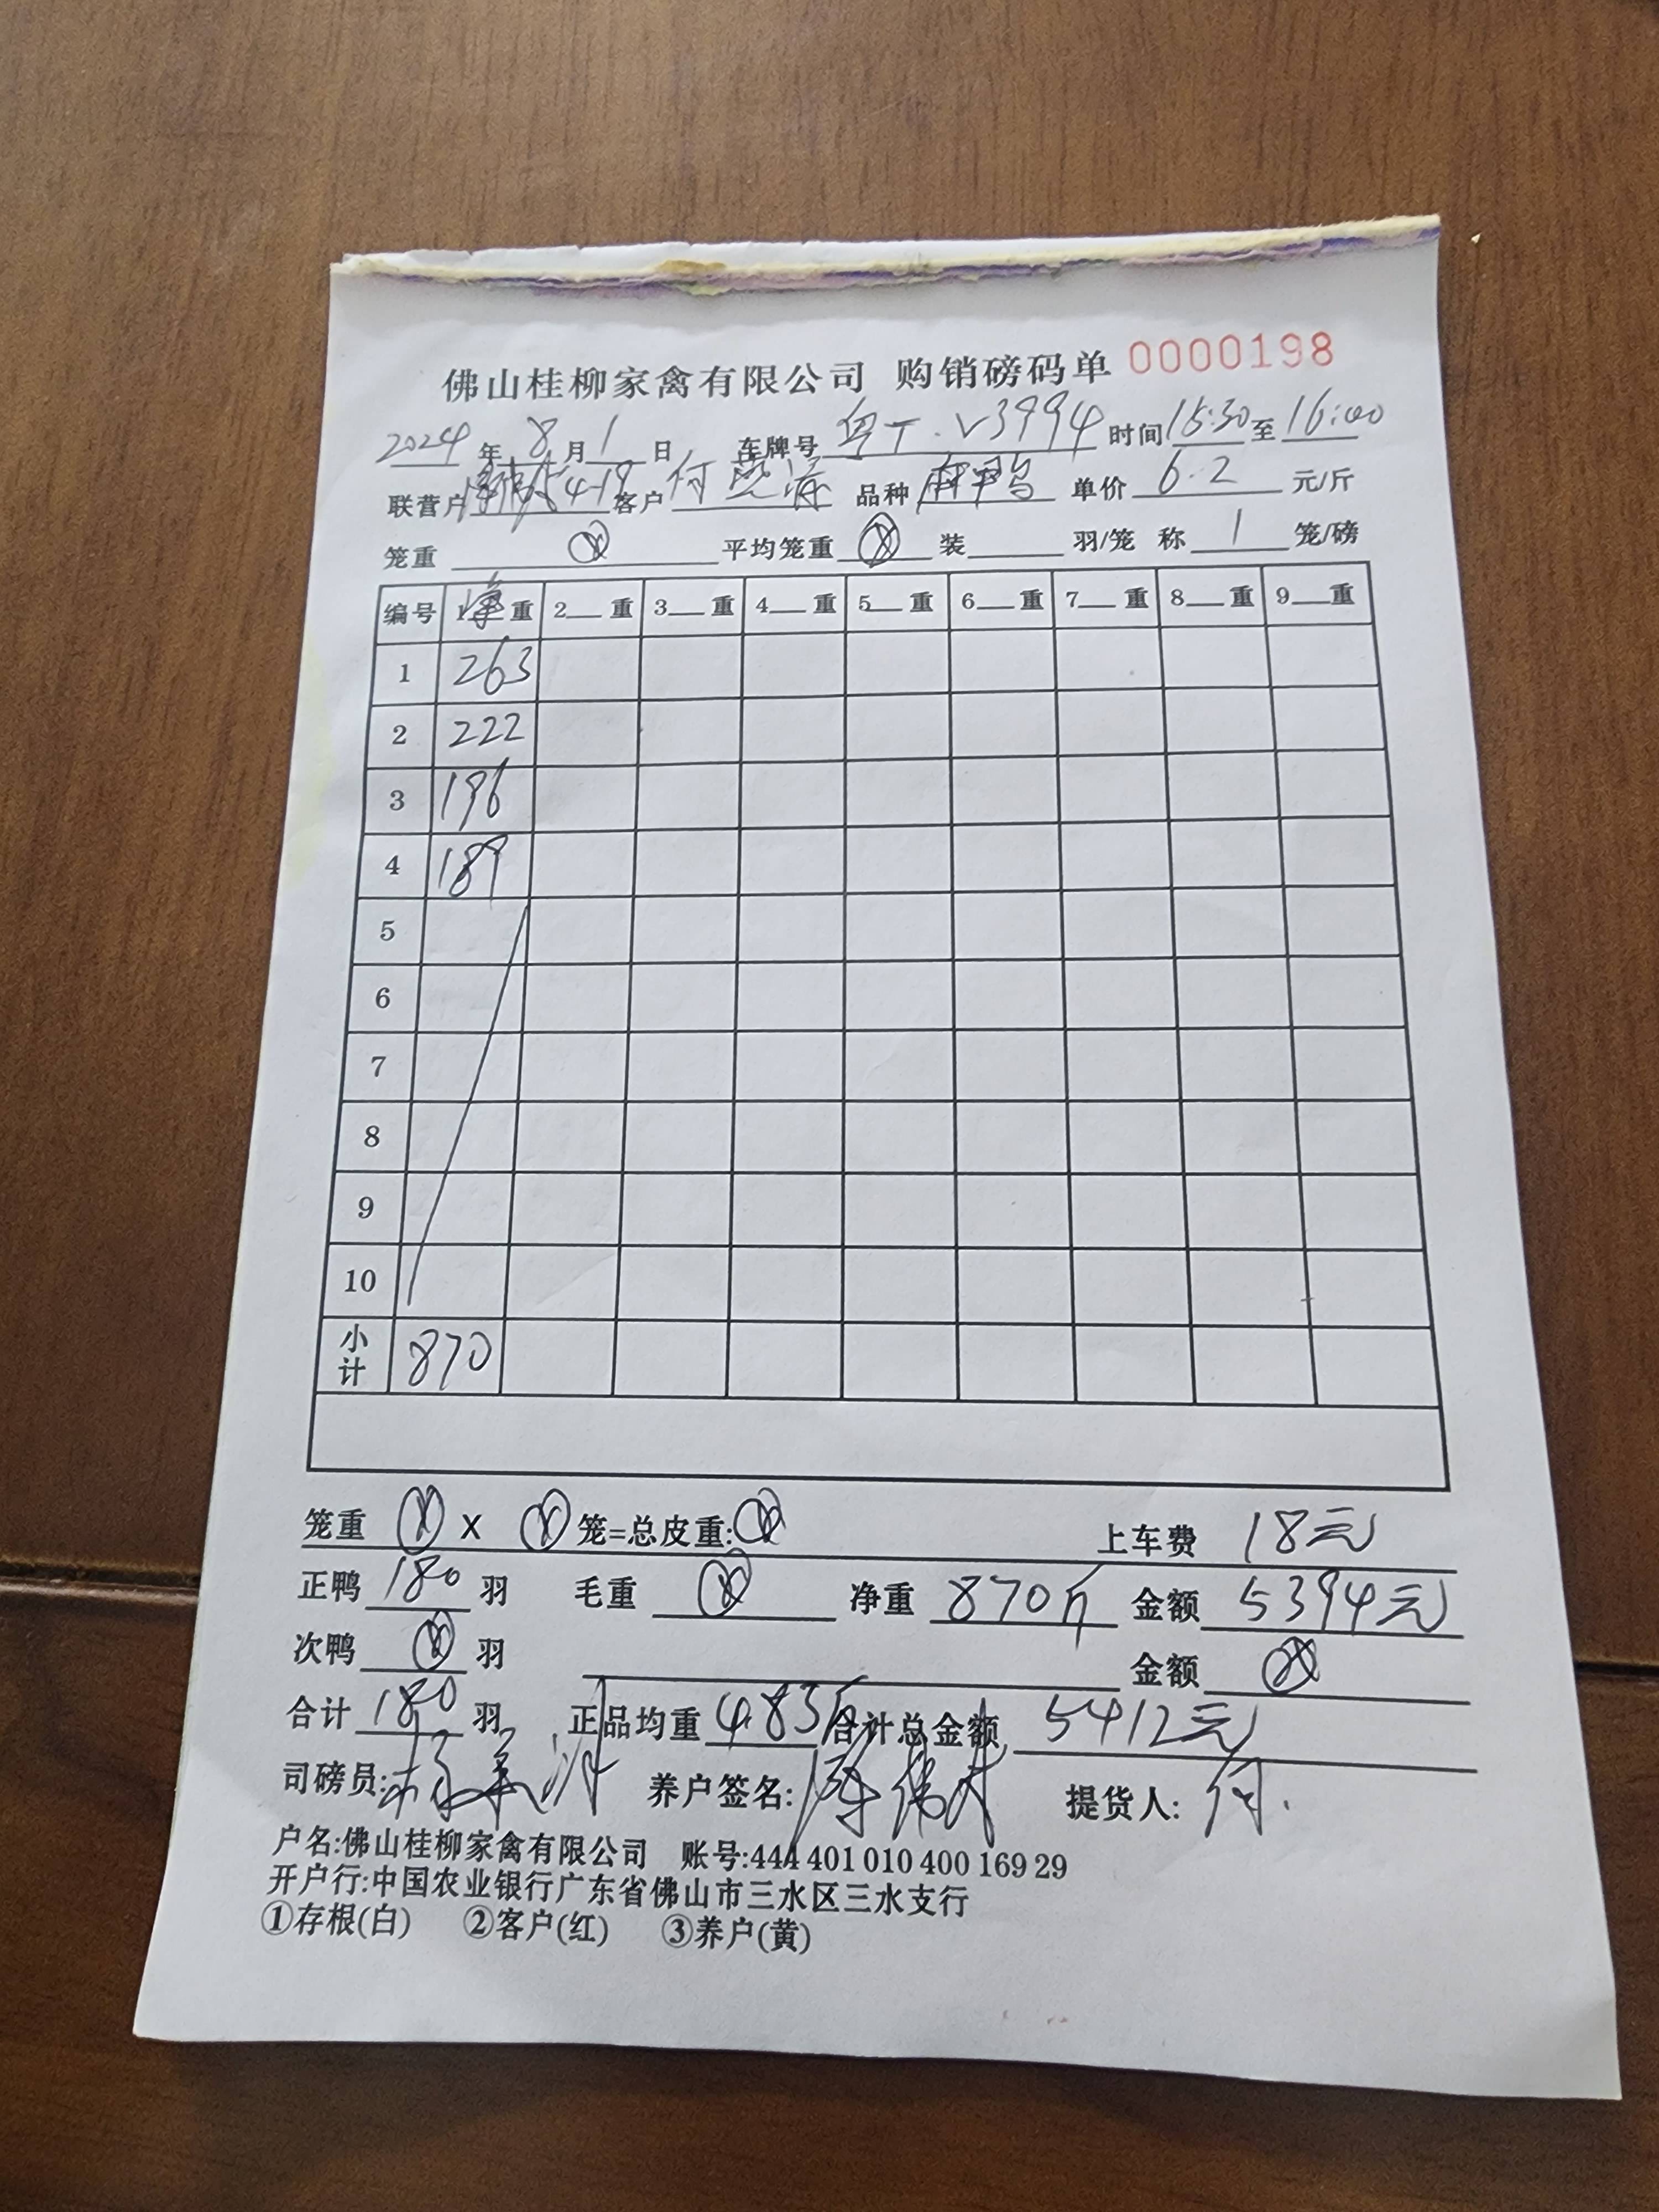 佛山桂柳家禽有限公司 购销磅码单 0000198
2024 年 8 月 1 日 车牌号 粤T·V3994 时间 15:30 至 16:00
联营户 4-19 客户 何 品种 单价 6.2 元/斤
笼重 平均笼重 装 羽/笼 称 1 笼/磅
编号 1净重 2 重 3 重 4 重 5 重 6 重 7 重 8 重 9 重
1 263
2 222
3 196
4 189
5
6
7
8
9
10
小计 870
笼重 X 笼=总皮重: 上车费 18元
正鸭 180 羽 毛重 净重 870斤 金额 5394元
次鸭 羽 金额
合计 180 羽 正品均重 4.83斤 合计总金额 5412元
司磅员: 养户签名: 陈伟才 提货人: 何.
户名:佛山桂柳家禽有限公司 账号:444 401 010 400 169 29
开户行:中国农业银行广东省佛山市三水区三水支行
①存根(白) ②客户(红) ③养户(黄)